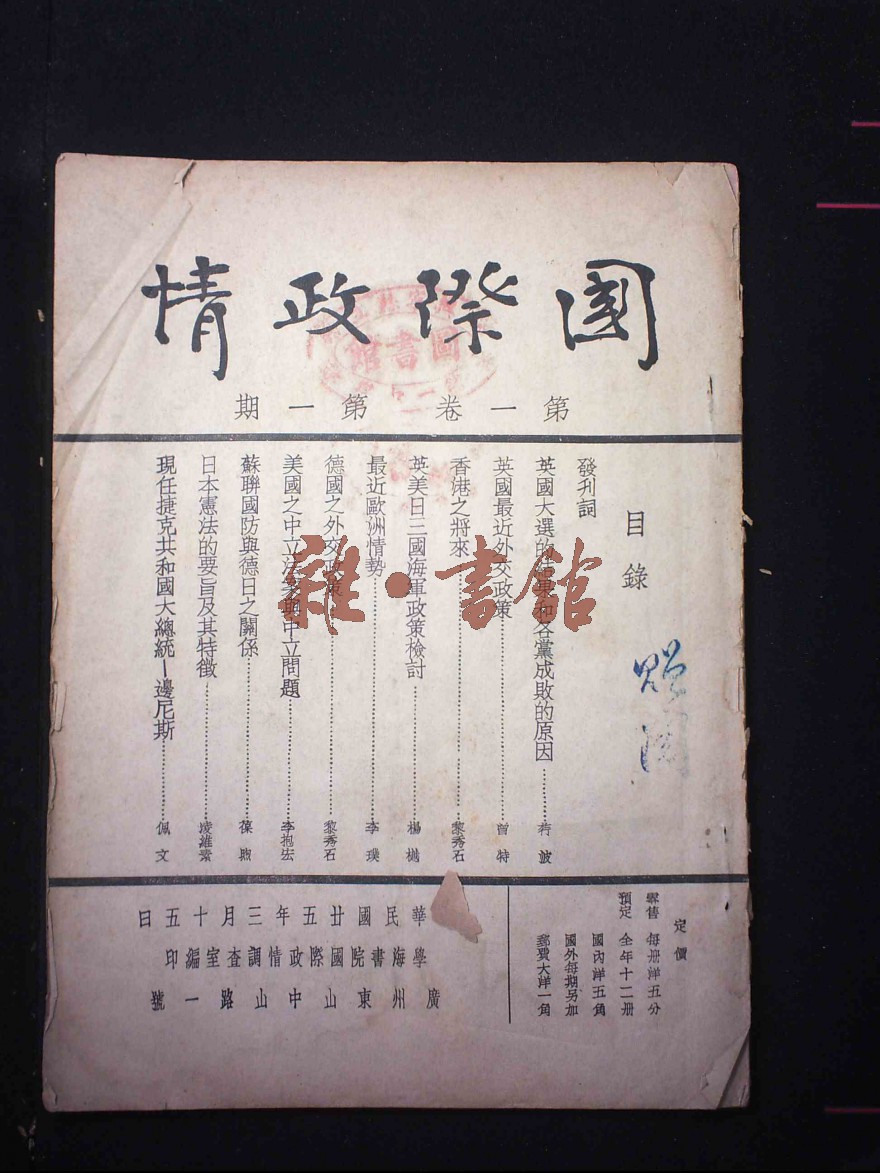 國際政情
第一卷 第一期
目錄
發刊詞
英國大選的結果和各黨成敗的原因……若波
英國最近外交政策……曾特
香港之將來……黎秀石
英美日三國海軍政策檢討……楊樾
最近歐洲情勢……李璞
德國之外交政策……黎秀石
美國之中立法案與中立問題……李抱宏
蘇聯國防與德日之關係……葆煦
日本憲法的要旨及其特徵……凌維素
現任捷克共和國大總統—邊尼斯……佩文
贈閱
定價
零售 每册洋五分
預定 全年十二册
國內洋五角
國外每期另加
郵費大洋一角
華民國廿五年三月十五日
學海書院國際政情調查室編印
廣州東山中山路一號
圖書館
雜·書館